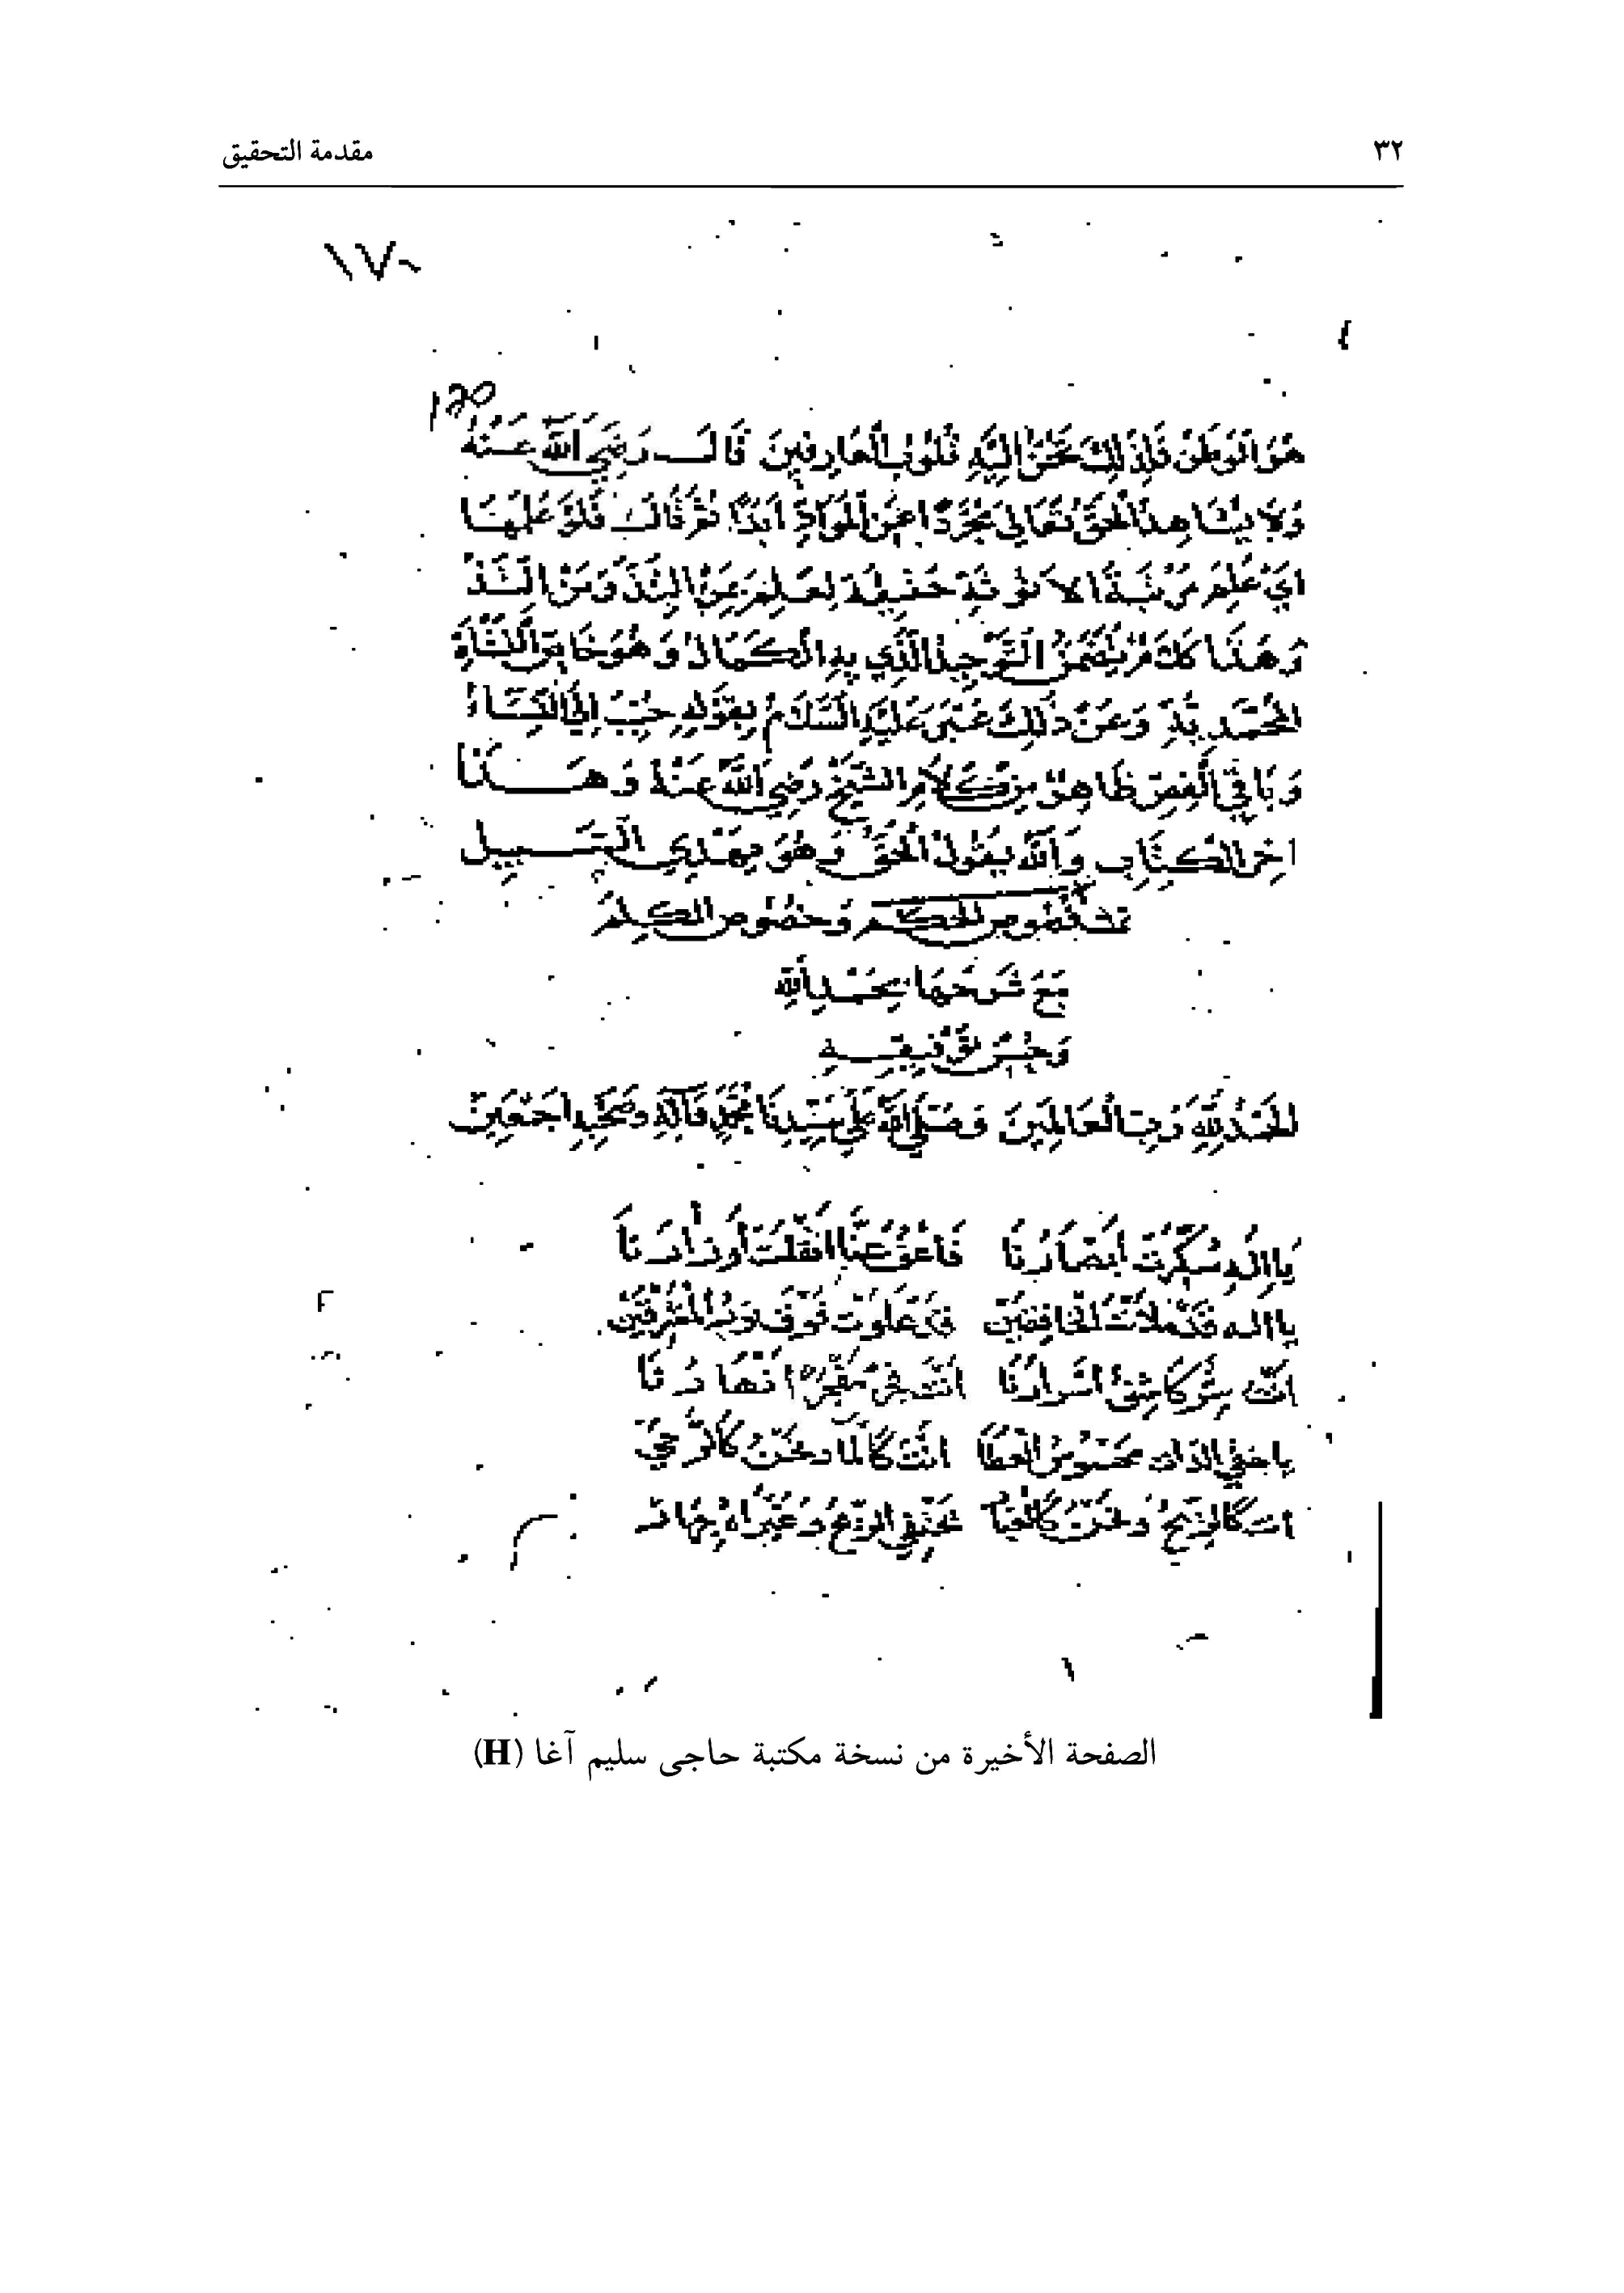 ٣٢ مقدمة التحقيق
١٧٠
هُوَ الْوَطَنُ فَلِذَلِكَ تَحِنُّ إِلَيْهِ قُلُوبُ الْعَارِفِينَ قَالَ رَضِيَ اللهُ عَنْهُ
وَلَا يُشَاهَدُ الْحَقُّ تَعَالَى مُجَرَّدًا عَنِ الْمَوَادِّ أَبَدًا ثُمَّ قَالَ فَلَوْ عَلِمَهَا
اَيْ عَلِمَ مَرْتَبَةَ الانُوثَةِ حَقِيقَةً لَعَلِمَ بِمَنِ الْتَذَّ وَمَنِ الْتَذَّ
وَهَذَا كَلَامٌ يَتَضَمَّنُ التَّوْحِيدَ الَّذِي بِهِ الْكَمَالُ وَهُوَ خَاصٌّ
الْمُحَمَّدِيَّةِ وَعَنْ ذَلِكَ عَبَّرَ عَلَيْهِ السَّلَامُ بِقَوْلِهِ حُبِّبَ إِلَيَّ النِّسَاءُ
وَبَاقِي الْفَصِّ ظَاهِرٌ مِنْ كَلَامِ الشَّيْخِ رَضِيَ اللهُ عَنْهُ وَهَذَا
اخِرُ الْكِتَابِ وَاللهُ يَقُولُ الْحَقَّ وَهُوَ يَهْدِي السَّبِيلَ
تمت فُصُوصُ الْحِكَمِ وَخُصُوصُ الْكَلِمِ
مَعَ شَرْحِهَا بِحَمْدِ اللهِ
وَحُسْنِ تَوْفِيقِهِ
الْحَمْدُ لِلَّهِ رَبِّ الْعَالَمِينَ وَصَلَّى اللهُ عَلَى سَيِّدِنَا مُحَمَّدٍ وَآلِهِ وَصَحْبِهِ اَجْمَعِينَ
يَا اِلَهِي سُكِّرَتْ اَبْصَارُنَا فَاعْفُ عَنَّا اَثْقَلَتْ اَوْزَارُنَا
يا الهي قَدْ مَلَأْتَ الْخَافِقَيْنِ قَدْ عَلَوْتَ فَوْقَ نُورِ الْمَشْرِقَيْنِ
اَنْتَ سِرٌّ كَاشِفُ اَسْرَارِنَا اَنْتَ فَجْرٌ مُفَجِّرٌ اَنْهَارَنَا
يا خفي الذات محسوس العطا انت كالماء ونحن كالرحى
انت كالريح ونحن كالغبار تختفي الريح وغبراه جهار
الصفحة الأخيرة من نسخة مكتبة حاجى سليم آغا (H)